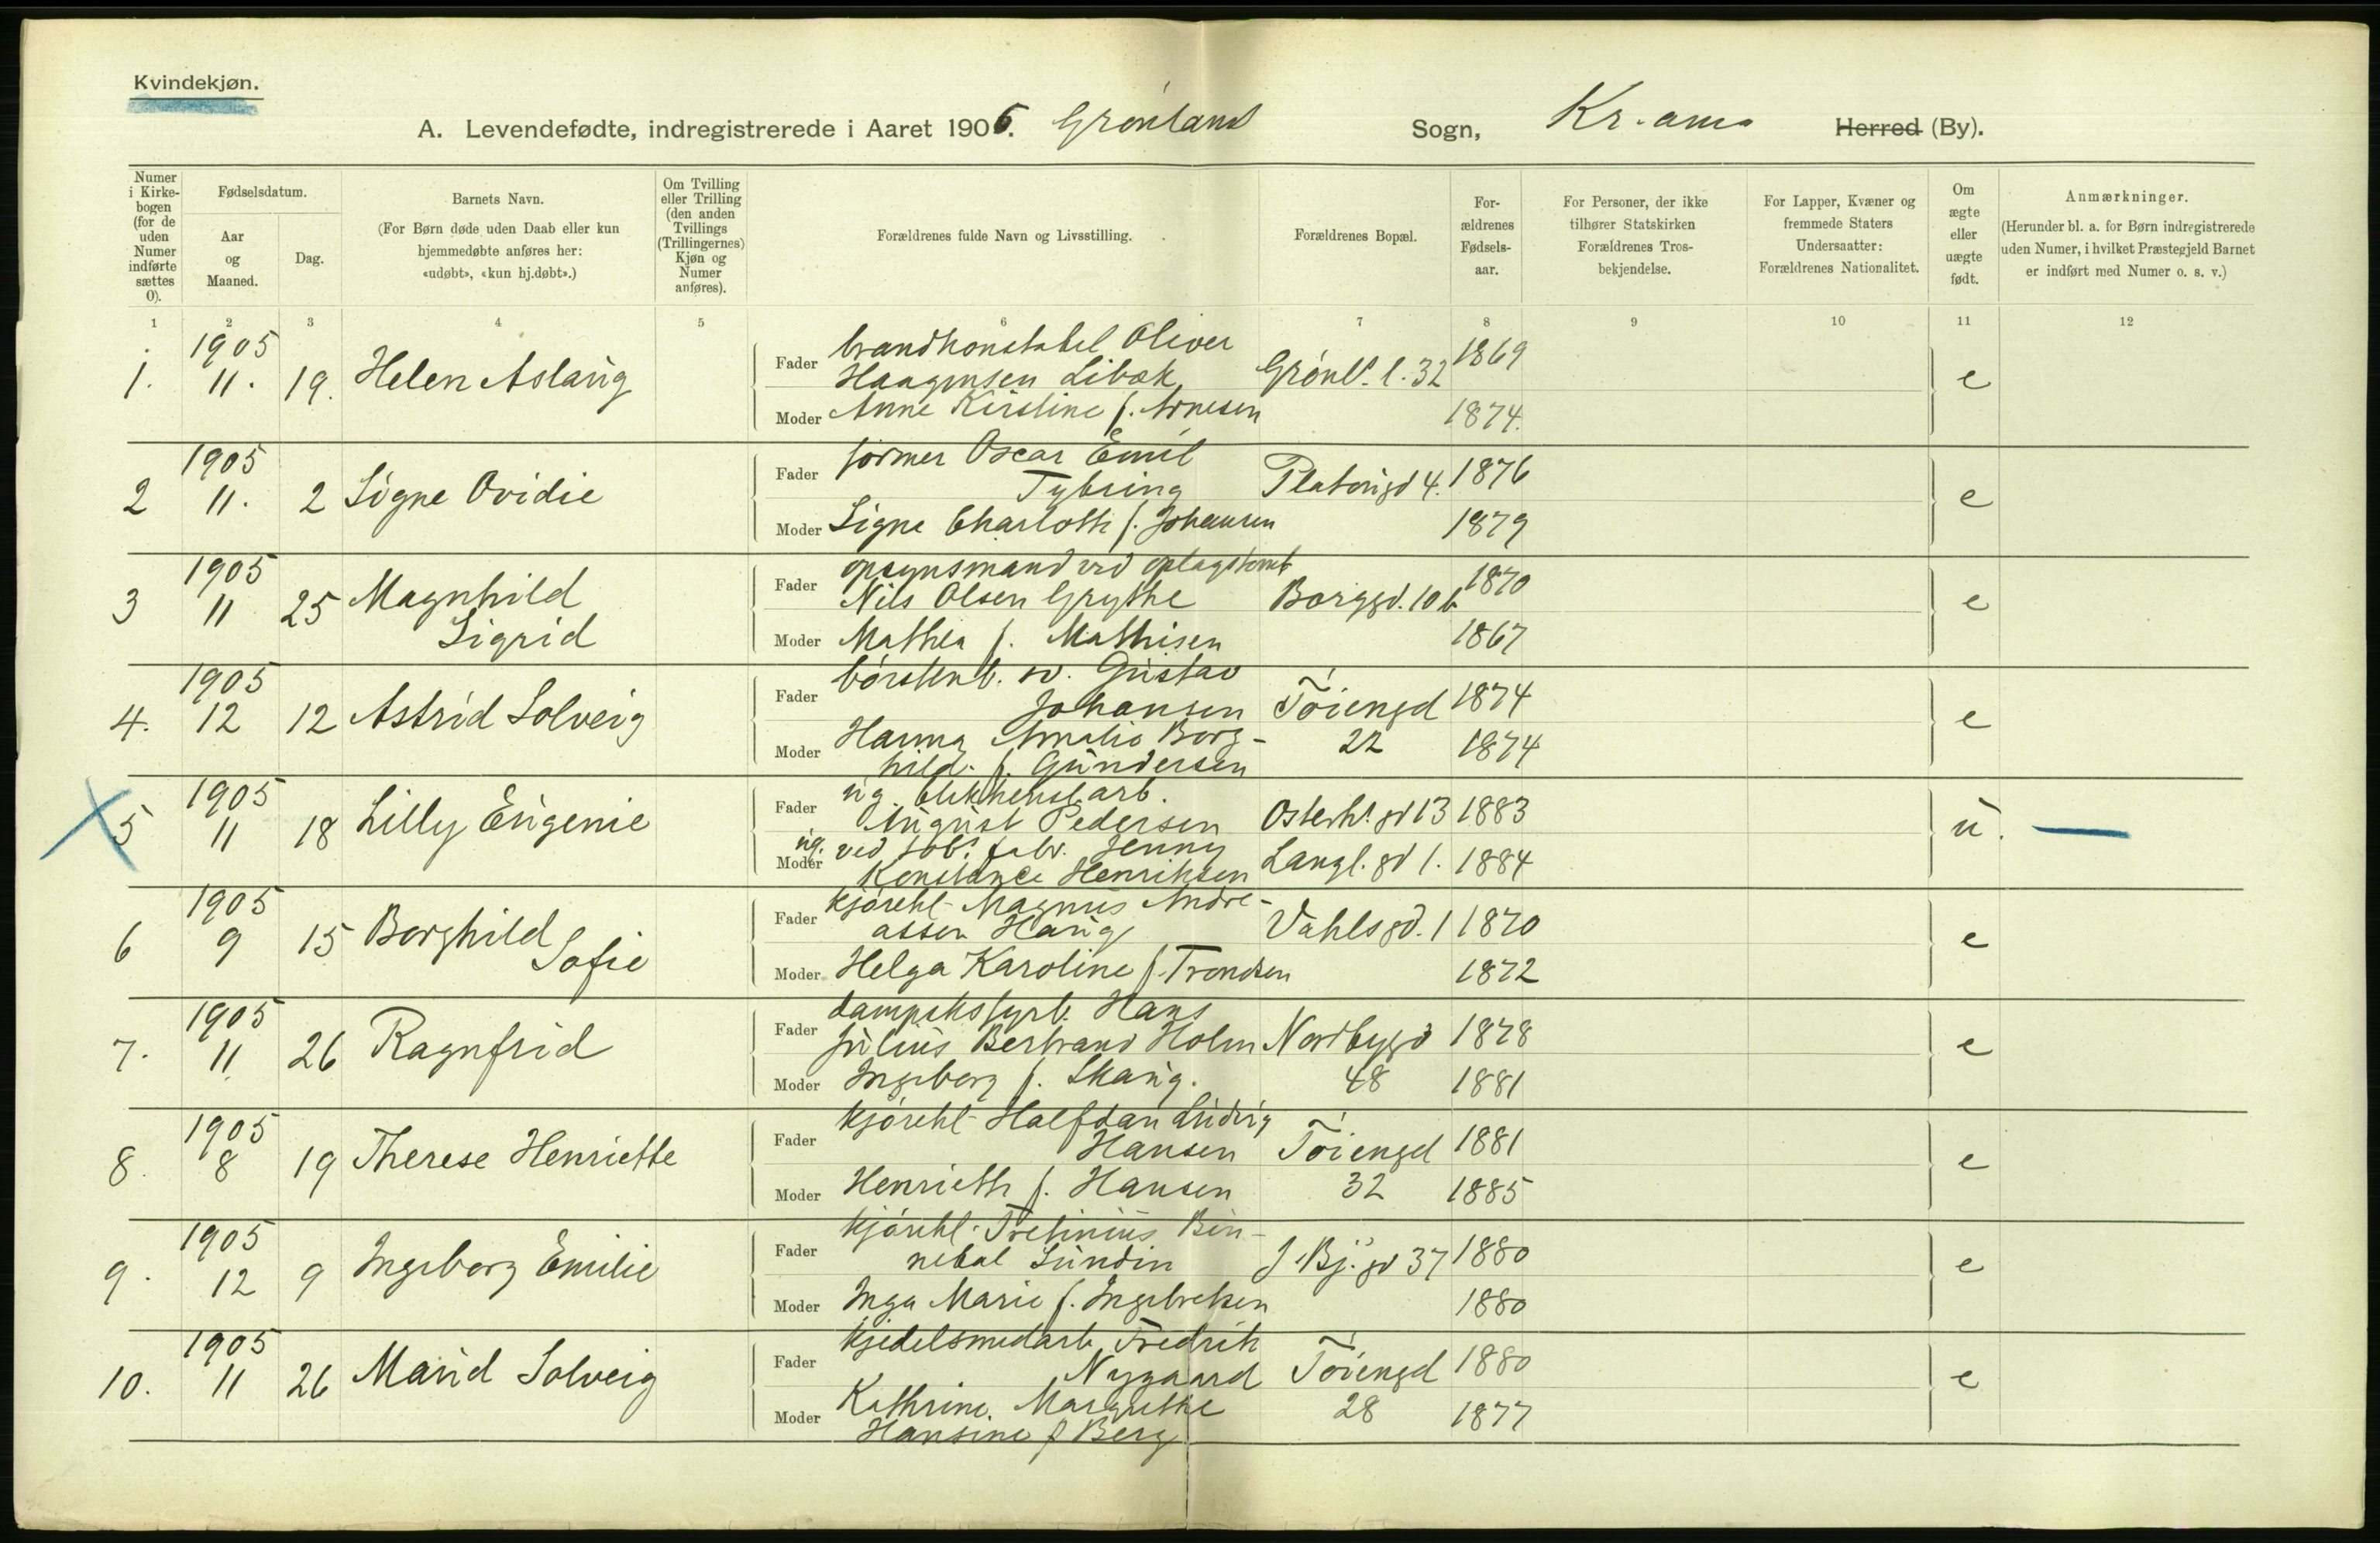 Kvindekjøn.
A. Levendefødte, indregistrerede i Aaret 1906. Grønland Sogn, Kr.ania Herred (By).
Numer i Kirkebogen (for de uden Numer indførte sættes 0).
Fødselsdatum.
Aar og Maaned.
Dag.
Barnets Navn.
(For Børn døde uden Daab eller kun hjemmedøbte anføres her: «udøbt», «kun hj.døbt».)
Om Tvilling eller Trilling (den anden Tvillings (Trillingernes) Kjøn og Numer anføres).
Forældrenes fulde Navn og Livsstilling.
Forældrenes Bopæl.
Forældrenes Fødselsaar.
For Personer, der ikke tilhører Statskirken Forældrenes Trosbekjendelse.
For Lapper, Kvæner og fremmede Staters Undersaatter: Forældrenes Nationalitet.
Om ægte eller uægte født.
Anmærkninger.
(Herunder bl. a. for Børn indregistrerede uden Numer, i hvilket Præstegjeld Barnet er indført med Numer o. s. v.)
1 2 3 4 5 6 7 8 9 10 11 12
1. 1905 11. 19. Helen Aslaug
Fader brandkonstabel Oliver Haagensen Libæk Grønl. l. 32 1869
Moder Anne Kirstine f. Arnesen 1874. e
2 1905 11. 2 Signe Ovidie
Fader former Oscar Emil Tybring Platousgd 4. 1876
Moder Signe Charlotte f. Johansen 1879 e
3 1905 11 25 Magnhild Sigrid
Fader opsynsmand ved oplagstomt Nils Olsen Grythe Borggd. 10 b 1870
Moder Mathea f. Mathisen 1867 e
4. 1905 12 12 Astrid Solveig
Fader børstenb. sv. Gustav Johansen Tøiengd 1874
Moder Hanna Amalie Borghild f. Gundersen 22 1874 e
5 1905 11 18 Lilly Eugenie
Fader ug. blikkenslarb. August Pedersen Osterh. gd 13 1883
Moder ug. ved tob. fabr. Jenny Konstance Henriksen Langl. gd 1. 1884 u. —
6 1905 9 15 Borghild Sofie
Fader kjørekl Magnus Andreassen Haug Vahlsgd. 1 1870
Moder Helga Karoline f. Trondsen 1872 e
7. 1905 11 26 Ragnfrid
Fader dampsksfyrb. Hans Julius Bertrand Holm Nordbygd 1878
Moder Ingeborg f. Skaug. 48 1881 e
8. 1905 8 19 Therese Henriette
Fader kjørekl Halfdan Ludvig Hansen Tøiengd 1881
Moder Henriette f. Hansen 32 1885 e
9. 1905 12 9 Ingeborg Emilie
Fader kjørekl. Lundin J. Bj. gd 37 1880
Moder Inga Marie f. Ingebretsen 1880 e
10. 1905 11 26 Marid Solveig
Fader kjedelsmedarb Fredrik Nygaard Tøiengd 1880
Moder Kathrine Margrethe Hansine f Berg 28 1877 e